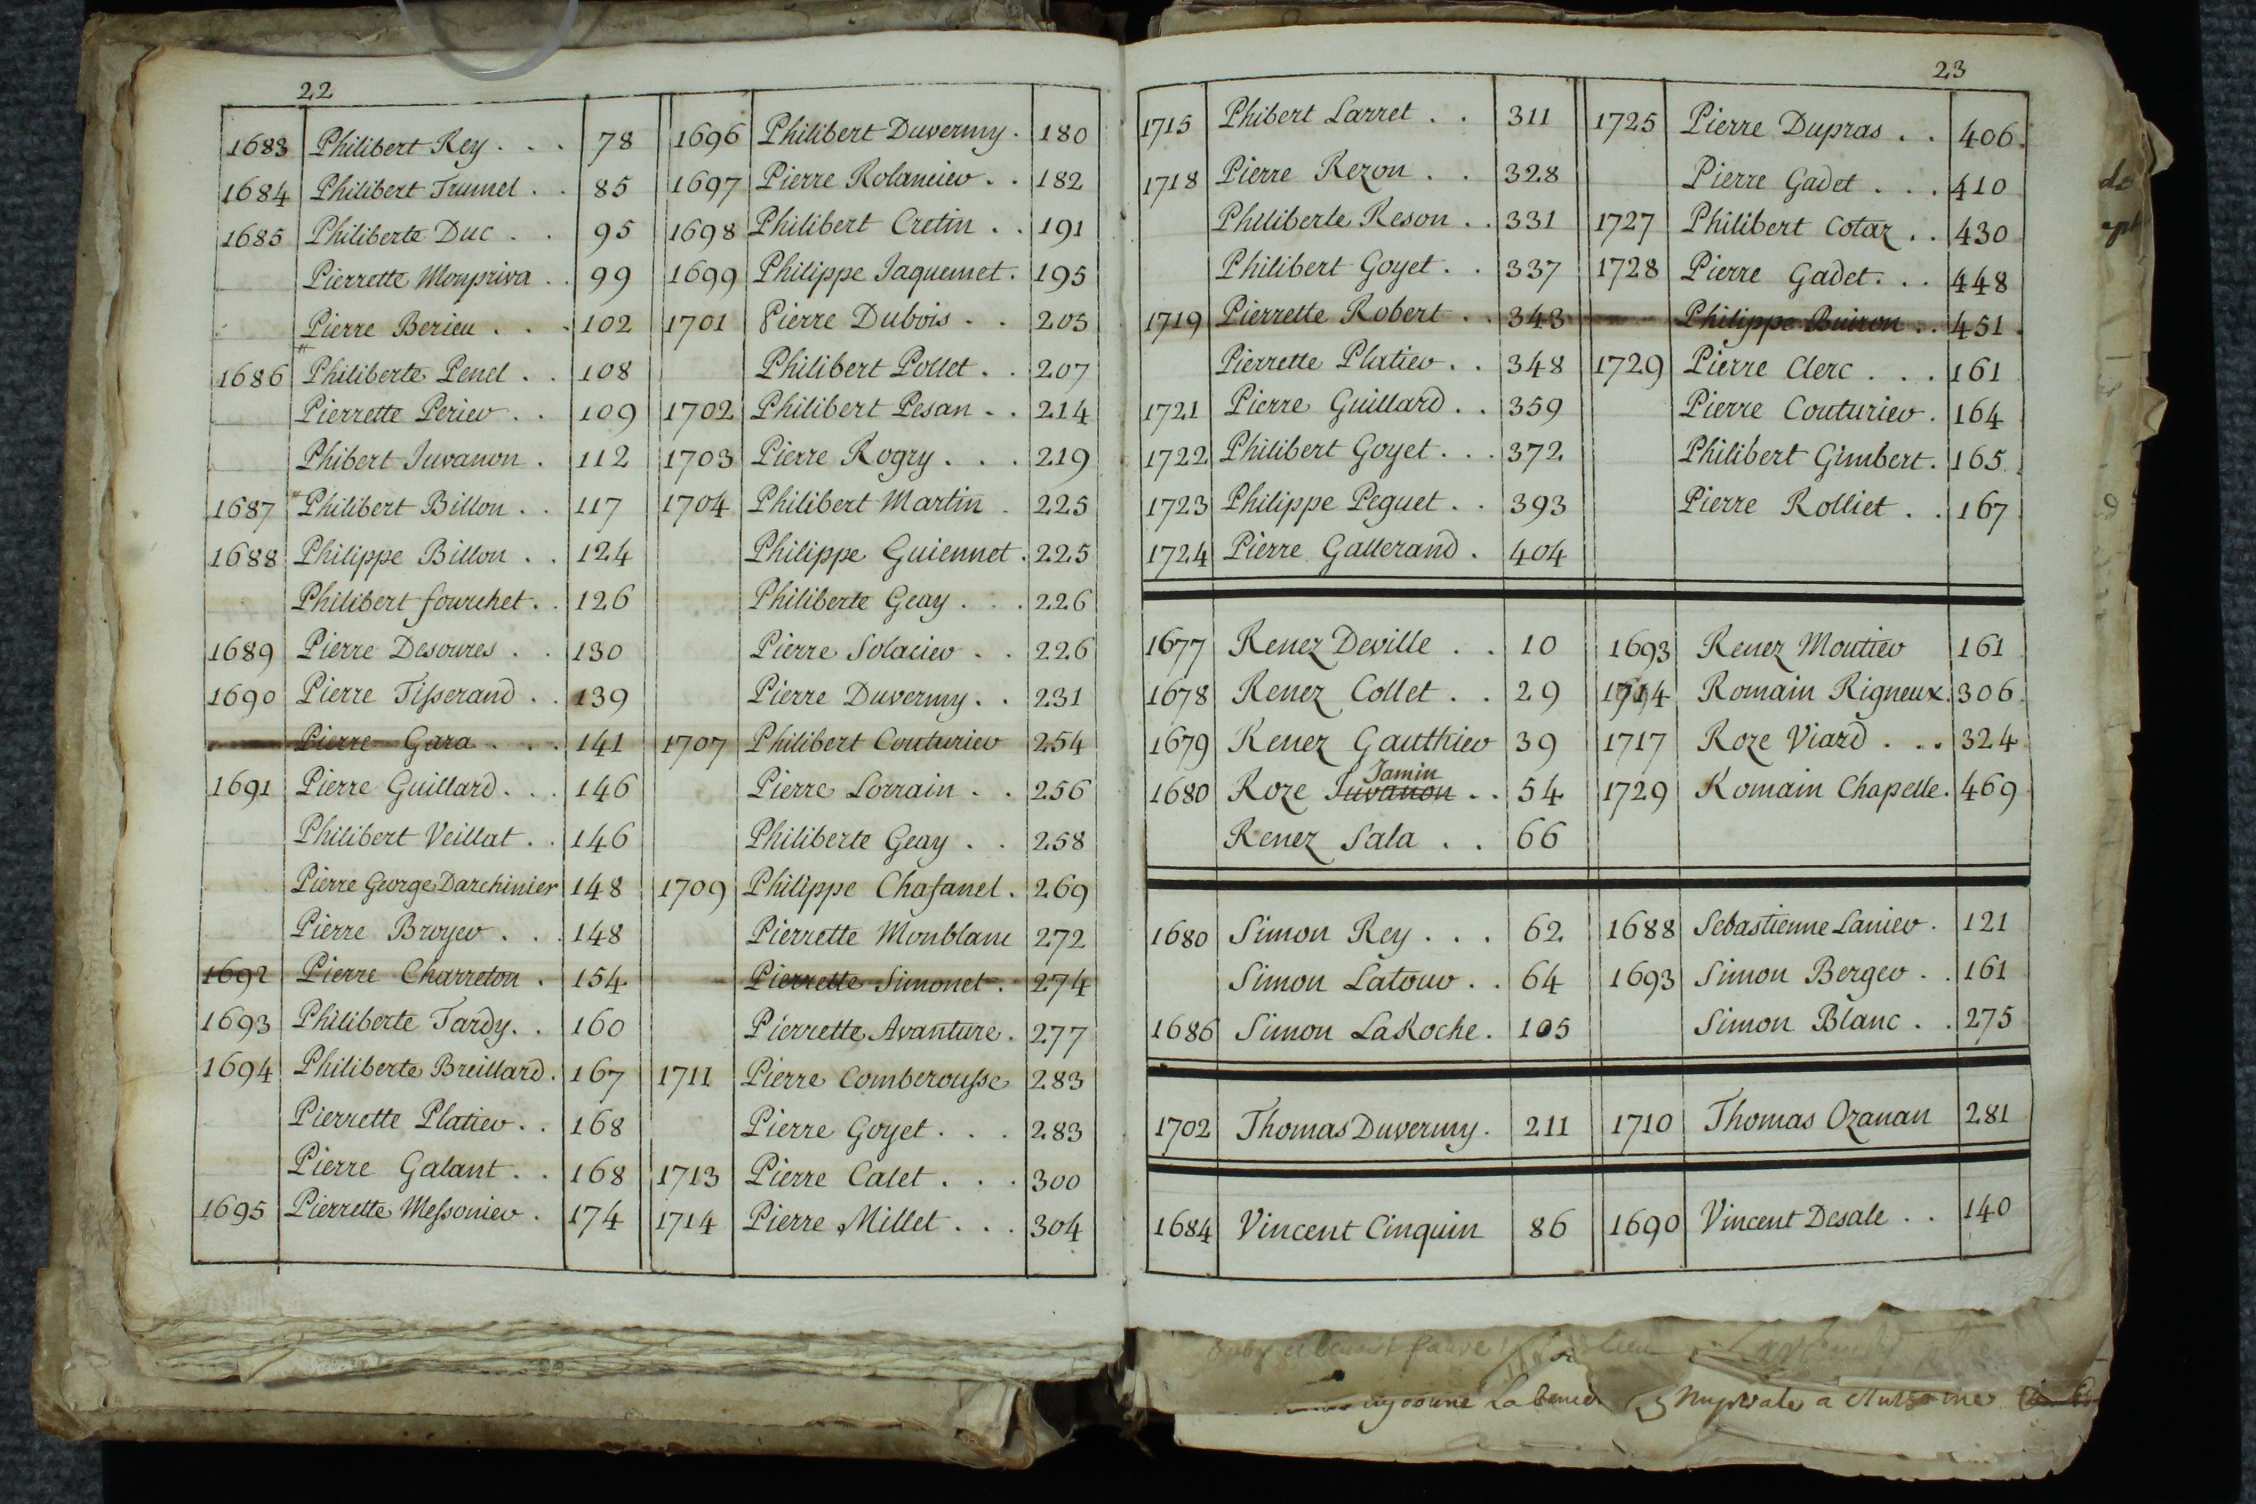 22
1683 Philibert Rey . . . 78
1684 Philibert Trumel . . 85
1685 Philiberte Duc . . 95
Pierrette Monpriva . . 99
Pierre Berieu . . . 102
1686 Philiberte Penel . . 108
Pierrette Periev . . 109
Phibert Juvanon . 112
1687 Philibert Billon . . 117
1688 Philippe Billon . . 124
Philibert fourchet . . 126
1689 Pierre Desoures . . 130
1690 Pierre Tisserand . . 139
Pierre Gara . . . 141
1691 Pierre Guillard . . . 146
Philibert Veillat . . 146
Pierre George Darchinier 148
Pierre Broyer . . . 148
1692 Pierre Charreton . 154
1693 Philiberte Tardy . . 160
1694 Philiberte Breillard . 167
Pierrette Platier . . 168
Pierre Galant . . 168
1695 Pierrette Messonier . 174
1696 Philibert Duvermy . 180
1697 Pierre Rolancier . . 182
1698 Philibert Cretin . . 191
1699 Philippe Jaquemet . 195
1701 Pierre Dubois . . 205
Philibert Pollet . . 207
1702 Philibert Pesan . . 214
1703 Pierre Rogry . . . 219
1704 Philibert Martin . 225
Philippe Guiennet . 225
Philiberte Geay . . . 226
Pierre Solacier . . 226
Pierre Duvermy . . 231
1707 Philibert Couturier 254
Pierre Lorrain . . 256
Philiberte Geay . . 258
1709 Philippe Chasanel . 269
Pierrette Monblanc 272
Pierrette Simonet . 274
Pierrette Avanture . 277
1711 Pierre Comberousse 283
Pierre Goyet . . . 283
1713 Pierre Calet . . . 300
1714 Pierre Millet . . . 304
23
1715 Phibert Larret . . 311
1718 Pierre Rezon . . 328
Philiberte Reson . . 331
Philibert Goyet . . 337
1719 Pierrette Robert . . 343
Pierrette Platier . . 348
1721 Pierre Guillard . . 359
1722 Philibert Goyet . . . 372
1723 Philippe Peguet . . 393
1724 Pierre Gallerand . 404
1725 Pierre Dupras . . 406
Pierre Gadet . . . 410
1727 Philibert Cotaz . . 430
1728 Pierre Gadet . . . 448
Philippe Buiron . . 451
1729 Pierre Clerc . . . 161
Pierre Couturier . 164
Philibert Gimbert . 165
Pierre Rolliet . . 167
1677 Renez Deville . . 10
1678 Renez Collet . . 29
1679 Renez Gauthier 39
Jamin
1680 Roze Juvanon . . 54
Renez Sala . . 66
1693 Renez Moutier 161
1714 Romain Rigneux . 306
1717 Roze Viard . . . 324
1729 Romain Chapelle . 469
1680 Simon Rey . . . 62
Simon Latour . . 64
1686 Simon LaRoche . 105
1688 Sebastienne Lanier . 121
1693 Simon Berger . . 161
Simon Blanc . . 275
1702 Thomas Duvermy . 211
1710 Thomas Ozanan 281
1684 Vincent Cinquin 86
1690 Vincent Desale . . 140